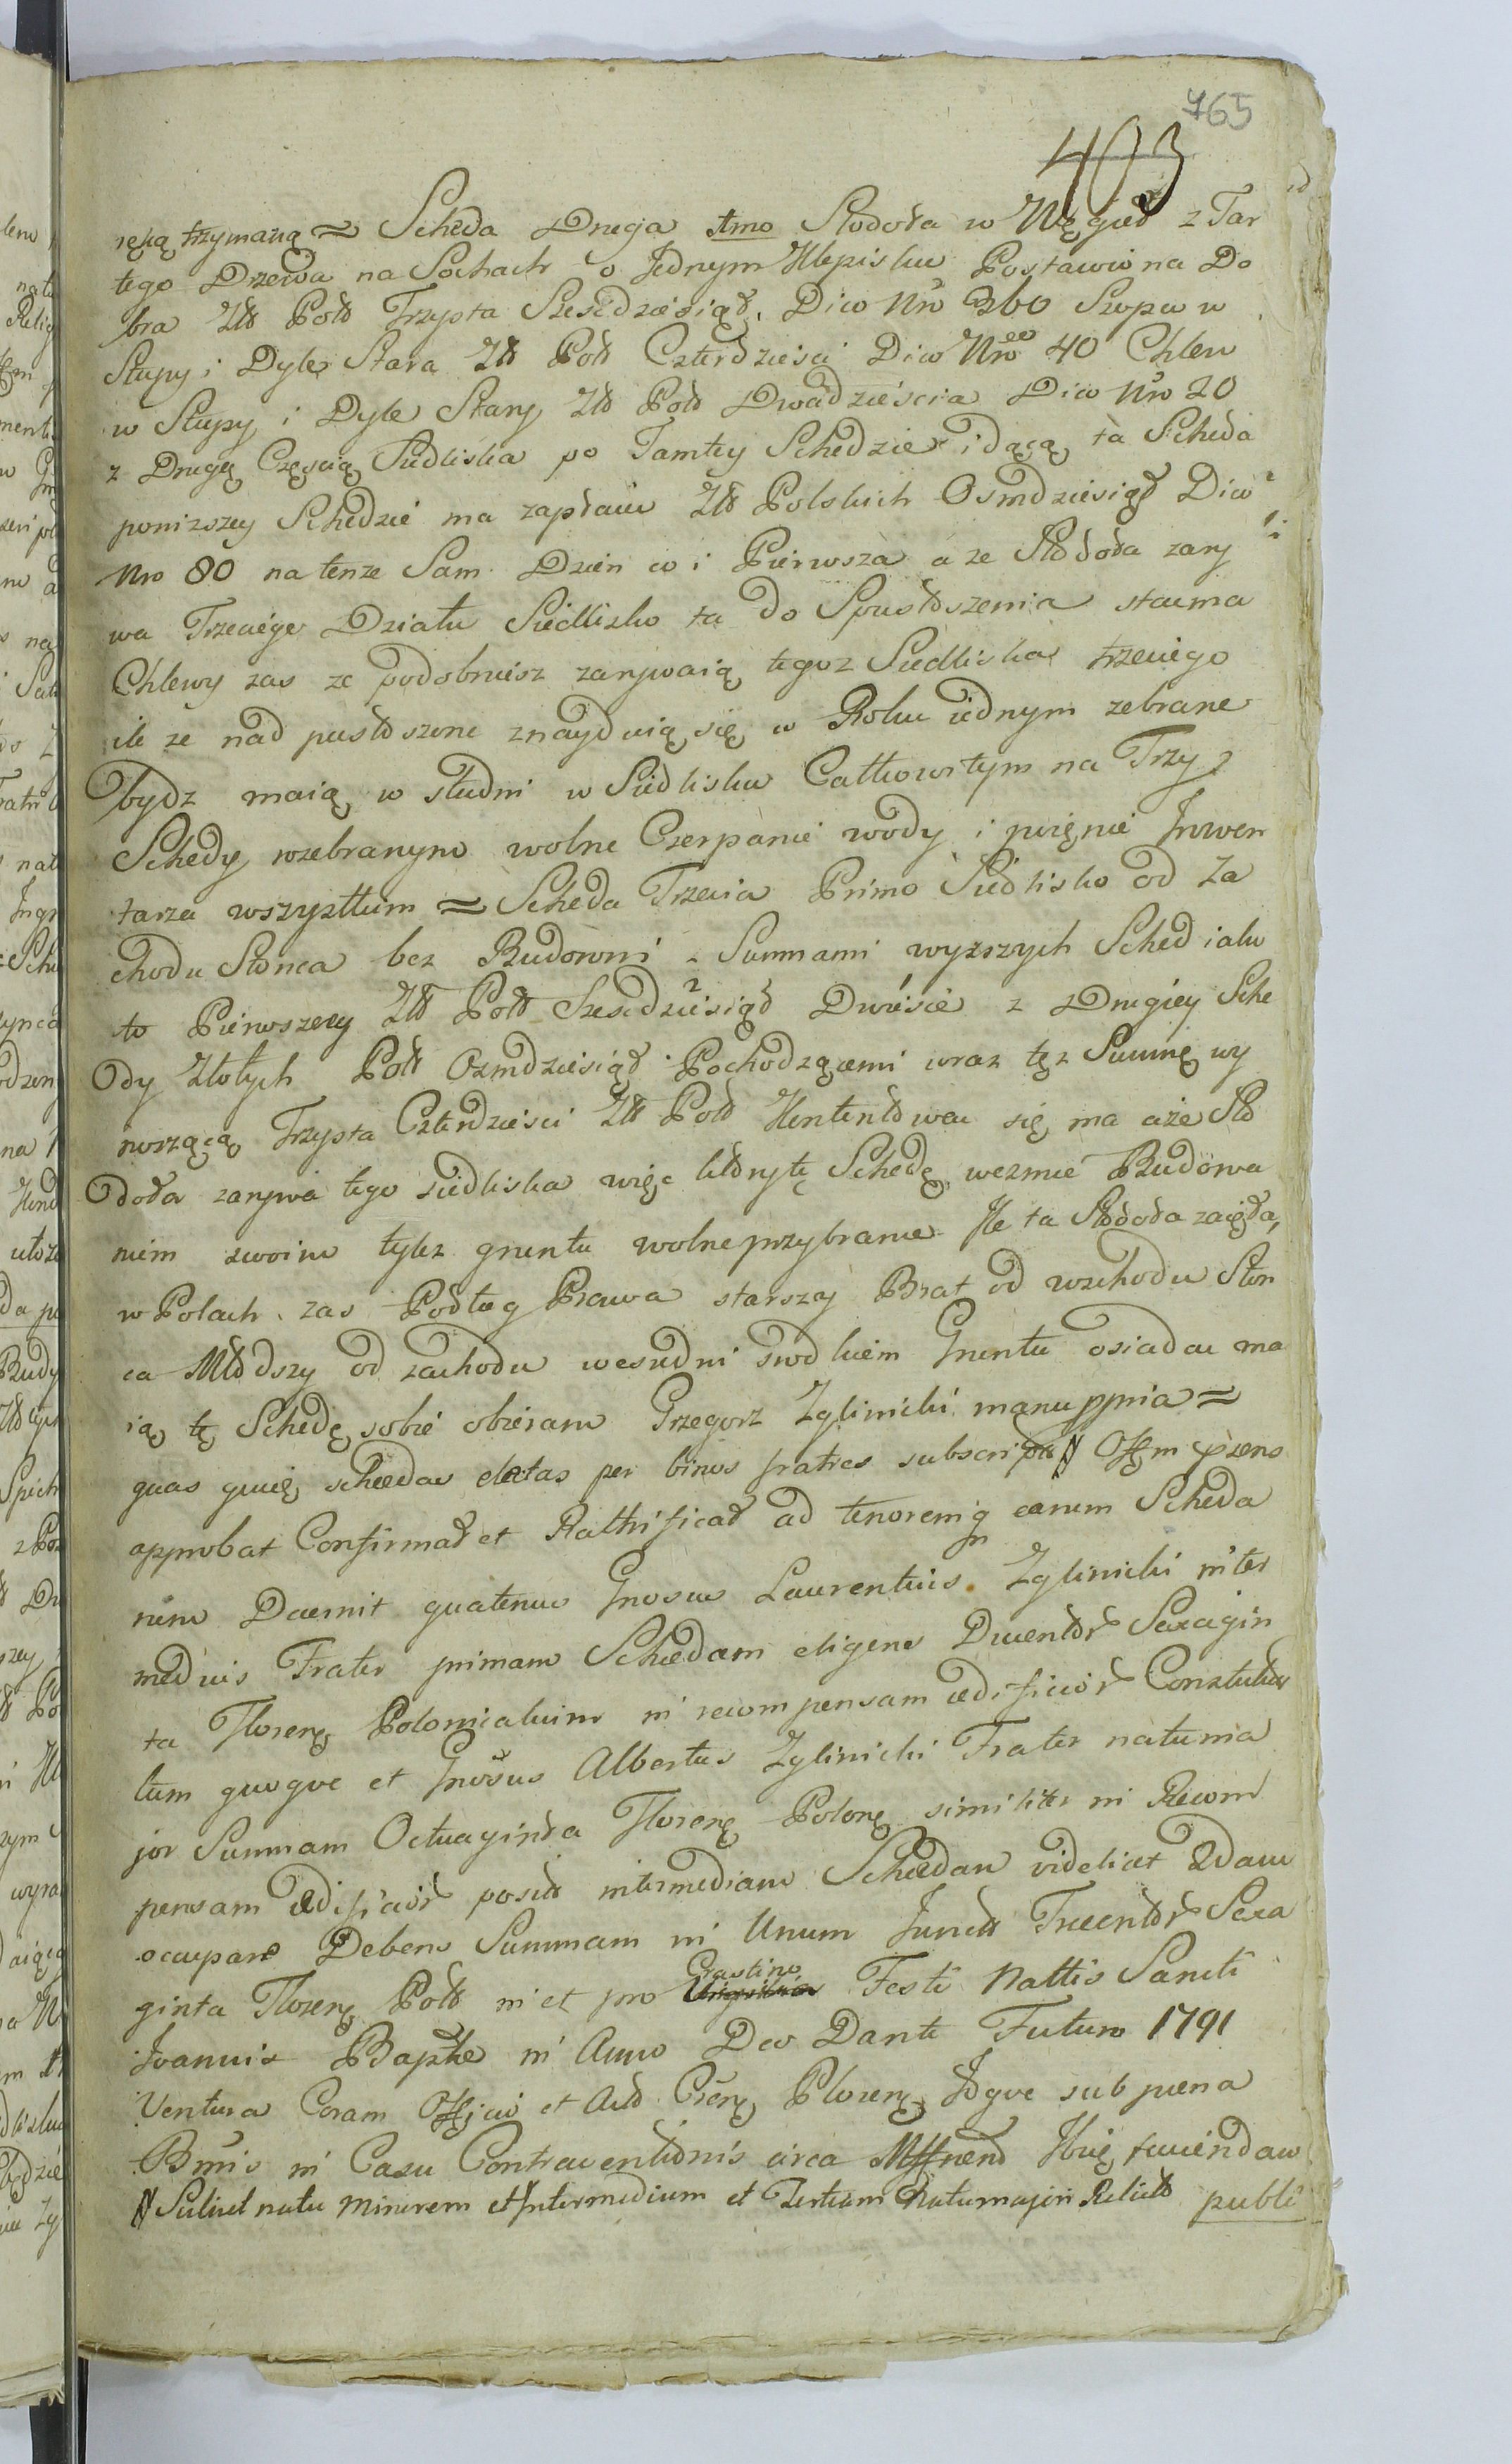 765
403
ręką trzymaną = Scheda Druga 1mo Stodoła w Węgieł z Tar
tego Drzewa na Sochach o Jednym Klepisku Postawiona Do
bra Złł Poll Trzysta Szescdziesiąt. Dico Nro 360 Szopa w
Słupy i Dyle Stara Złł Poll Czterdziesci Dico Nro 40 Chlew
w Słupy i Dyle Stary Złł Poll Dwadziescia Dico Nro 20
z Drugę Częscią Siedliska po Tamtey Schedzie idącą ta Scheda
ponizszey Schedzie ma zapłacic Złł Polskich Osmdziesiąt Dico
Nro 80 na tenze Sam Dzien co i Pierwsza a ze Stodoła zary
wa Trzeciego Działu Siedlisko ta do Spustoszenia stac ma
Chlewy zas ze podobniesz zarywaią tegoz Siedliska trzeciego
ile ze nad pustoszone znayduią się w Roku iednym zebrane
bydz maią w studni w Siedlisku Całkowitym na Trzy
Schedy rozebranym wolne Czerpanie wody i poienie Jnwen
tarza wszystkim = Scheda Trzecia Primo Siedlisko od Za
chodu Słonca bez Budowni z Summami wyzszych Sched iako
to Pierwszey Złł Poll Szescdziesiąt Dwiescie z Drugiey Sche
dy Złotych Poll Ozmdziesiąt Pochodzącemi wraz tęz Summę wy
noszącą Trzysta Czterdziesci Złł Poll Kontentowac się ma aże Sto
doła zarywa tego siedliska więc ktory tę Schedę wezmie Budowa
niem swoim tylez gruntu wolne przybranie Jle ta Stodoła zaięła,
w Polach zas Podług Prawa starszy Brat od wschodu Słon
ca Młodszy od zachodu wesrzedni srodkiem Gruntu osiadac ma
ią tę Schedę sobie obieram Grzegorz Zglinicki manu ppria =
quas quid schedas electas per binos fratres subscriptas # Offm præns
approbat Confirmat et Rathificat ad tenoremq earum Scheda
rum Decernit quatenus Gnosus Laurentius Zglinicki inter
medius Frater primam Schedam eligens Ducentor Sexagin
ta Floren Polonicalium in recompensam ædificior Constitutor
tum quoque et Gnosus Albertus Zglinicki Frater natu ma
jor Summam Octuaginta Floren Polon similiter in Recom
pensam ædificior posit intermediam Schedam videlicet 2dam
occupans Debens Summam in Unum Junct Trecentor Sexa
ginta Floren Poll in et pro Crastino Festi Nattis Sancti
Joannis Baptæ in Anno Deo Dante Futuro 1791
Ventura Coram Officio et Actis Cren Ploren Jdque sub pœna
Bnnis in Casu Contraventionis circa Offnend faciendam
# Scilicet natu Minorem et Jntermedium et Tertiam Natu majori Relict publi